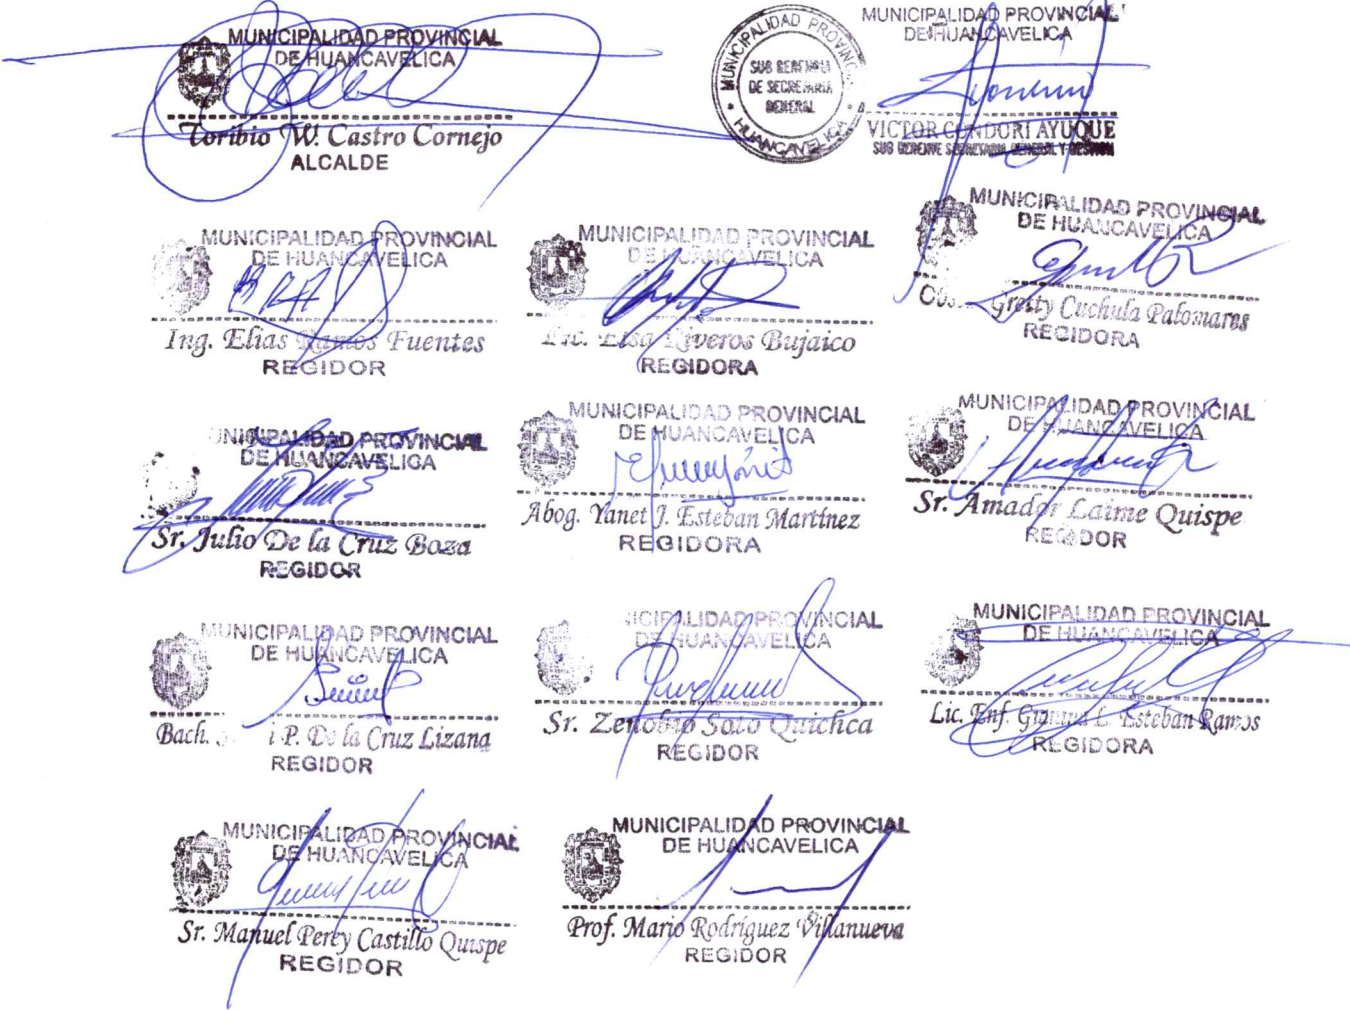 MUNICIPALIDAD PROVINCIAL
DE HUANCAVELICA
Toribio W. Castro Cornejo
ALCALDE
MUNICIPALIDAD PROVINCIAL
HUANCAVELICA
SUB GERENCIA
DE SECRETARIA
GENERAL
MUNICIPALIDAD PROVINCIAL
DE HUANCAVELICA
VICTOR CONDORI AYUQUE
SUB GERENTE SECRETARIA GENERAL Y GESTION
MUNICIPALIDAD PROVINCIAL
DE HUANCAVELICA
Ing. Elias Ramos Fuentes
REGIDOR
MUNICIPALIDAD PROVINCIAL
DE HUANCAVELICA
Lic. Elsa Riveros Bujaico
REGIDORA
MUNICIPALIDAD PROVINCIAL
DE HUANCAVELICA
Gretty Cuchula Palomares
REGIDORA
MUNICIPALIDAD PROVINCIAL
DE HUANCAVELICA
Sr. Julio De la Cruz Boza
REGIDOR
MUNICIPALIDAD PROVINCIAL
DE HUANCAVELICA
Abog. Yanet J. Esteban Martínez
REGIDORA
MUNICIPALIDAD PROVINCIAL
DE HUANCAVELICA
Sr. Amador Laime Quispe
REGIDOR
MUNICIPALIDAD PROVINCIAL
DE HUANCAVELICA
Bach. P. De la Cruz Lizana
REGIDOR
MUNICIPALIDAD PROVINCIAL
DE HUANCAVELICA
Sr. Zenobio Soto Quichca
REGIDOR
MUNICIPALIDAD PROVINCIAL
DE HUANCAVELICA
Lic. Enf. L. Esteban Ramos
REGIDORA
MUNICIPALIDAD PROVINCIAL
DE HUANCAVELICA
Sr. Manuel Percy Castillo Quispe
REGIDOR
MUNICIPALIDAD PROVINCIAL
DE HUANCAVELICA
Prof. Mario Rodríguez Villanueva
REGIDOR